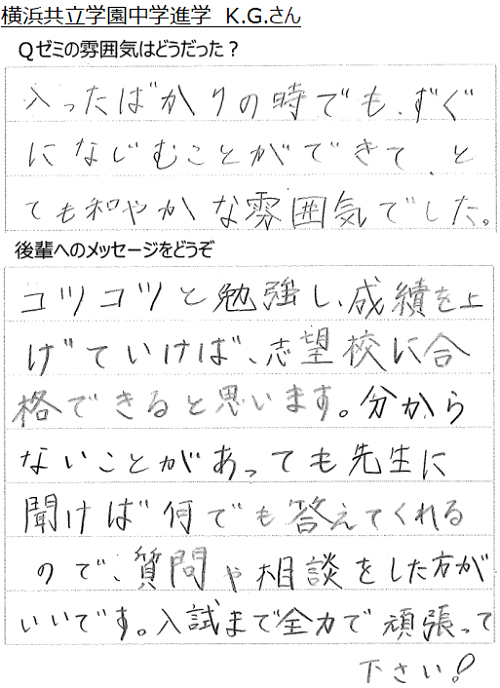 横浜共立学園中学進学 K.G.さん
Qゼミの雰囲気はどうだった？
入ったばかりの時でも、ずぐ
になじむことができて、と
ても和やかな雰囲気でした。
後輩へのメッセージをどうぞ
コツコツと勉強し、成績を上
げていけば、志望校に合
格できると思います。分から
ないことがあっても先生に
聞けば何でも答えてくれる
ので、質問や相談をした方が
いいです。入試まで全力で頑張って
下さい!